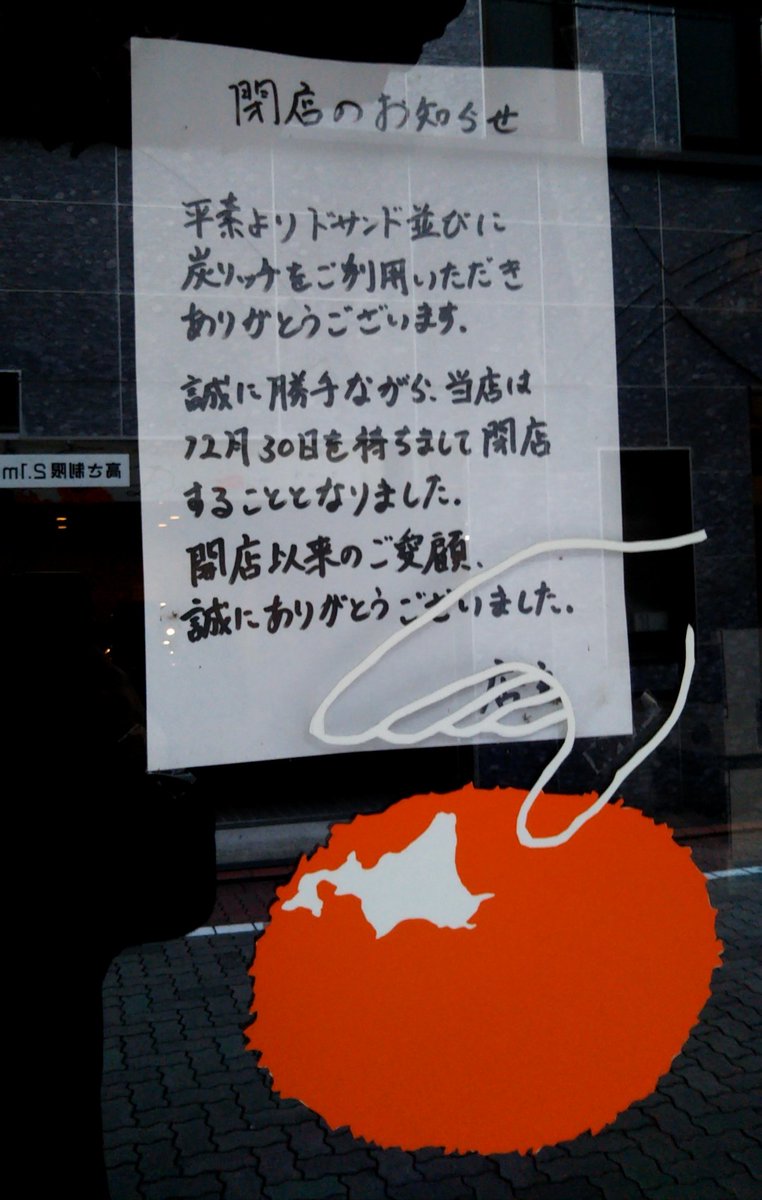 閉店のお知らせ
平素よりドサンド並びに
炭リッケをご利用いただき
ありがとうございます。
誠に勝手ながら、当店は
12月30日を持ちまして閉店
することとなりました。
開店以来のご愛顧、
誠にありがとうございました。
店主
高さ制限2.1m